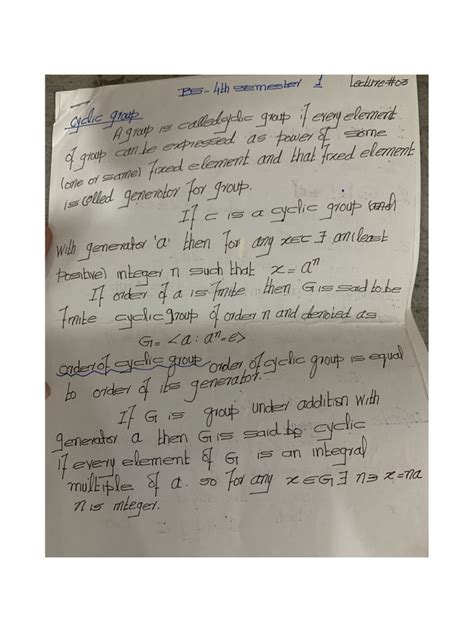 BS-4th semester 1 Lecture#03
cyclic group
A group is called cyclic group if every element
of group can be expressed as power of some
(one or same) fixed element and that fixed element
is called generator for group.
If C is a cyclic group (and)
with generator 'a' then for any x∈c ∃ an (least
Positive) integer n such that x = aⁿ
If order of a is finite then G is said to be
finite cyclic group of order n and denoted as
G = <a : aⁿ=e>
order of cyclic group order of cyclic group is equal
to order of its generator.
If G is group under addition with
generator a then G is said to cyclic
if every element of G is an integral
multiple of a. so for any x∈G ∃ n∋ x=na
n is integer.